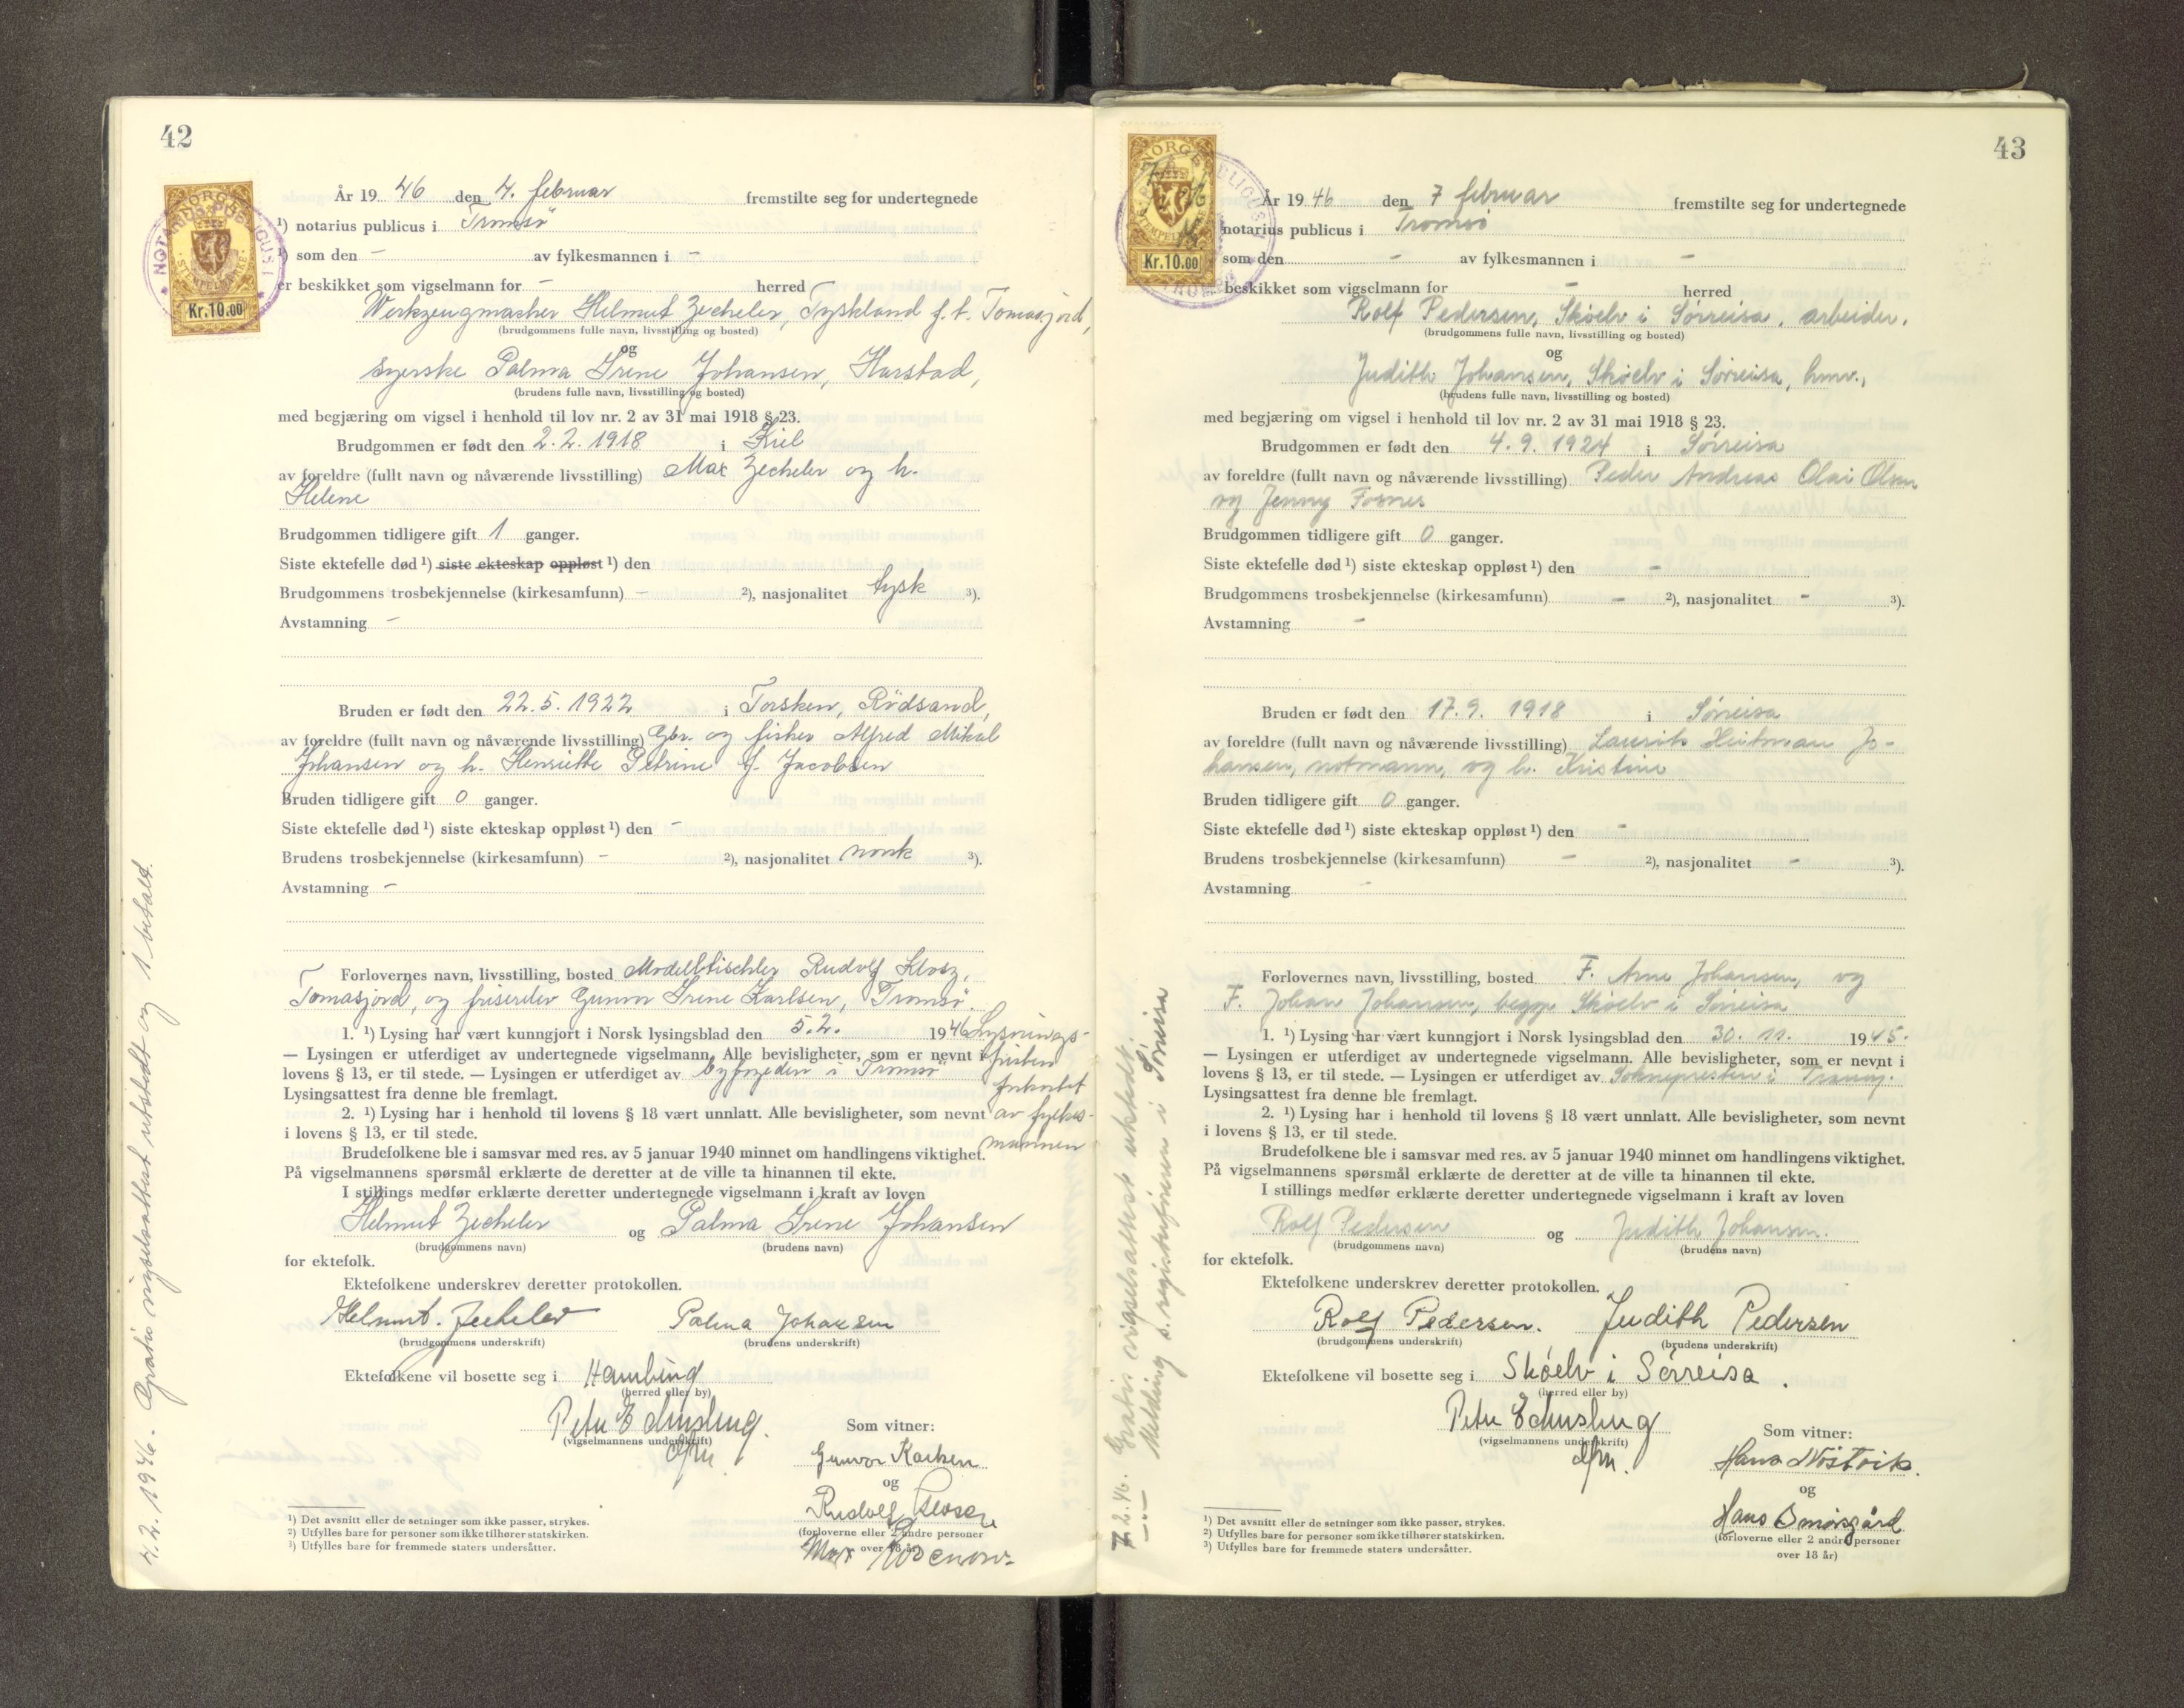 42
NORGE
STEMPELMERKE
Kr.10.00
NOTARIUS PUBLICUS I
År 1946 den 7. februar fremstilte seg for undertegnede
¹) notarius publicus i Tromsö
¹) som den - av fylkesmannen i -
er beskikket som vigselmann for - herred
Werkzeugmacher Helmut Zecheler, Tyskland f.t. Tomasjord,
(brudgommens fulle navn, livsstilling og bosted)
og
syerske Palma Irene Johansen, Harstad,
(brudens fulle navn, livsstilling og bosted)
med begjæring om vigsel i henhold til lov nr. 2 av 31 mai 1918 § 23.
Brudgommen er født den 2.2.1918 i Kiel
av foreldre (fullt navn og nåværende livsstilling) Max Zecheler og h.
Helene
Brudgommen tidligere gift 1 ganger.
Siste ektefelle død ¹) siste ekteskap oppløst ¹) den
Brudgommens trosbekjennelse (kirkesamfunn) - ²), nasjonalitet tysk ³).
Avstamning -
Bruden er født den 22.5.1922 i Torsken, Rödsand,
av foreldre (fullt navn og nåværende livsstilling) Gbr. og fisker Alfred Mikal
Johansen og h. Henriette Petrine f. Jacobsen
Bruden tidligere gift 0 ganger.
Siste ektefelle død ¹) siste ekteskap oppløst ¹) den -
Brudens trosbekjennelse (kirkesamfunn) - ²), nasjonalitet norsk ³).
Avstamning -
Forlovernes navn, livsstilling, bosted Modelltischler Rudolf Klosz,
Tomasjord, og friserelev Gunvor Irene Karlsen, Tromsö.
1. ¹) Lysing har vært kunngjort i Norsk lysingsblad den 5.2. 1946 Lysnings-
— Lysingen er utferdiget av undertegnede vigselmann. Alle bevisligheter, som er nevnt i fristen
lovens § 13, er til stede. — Lysingen er utferdiget av byfogeden i Tromsö forkortet
Lysingsattest fra denne ble fremlagt.
2. ¹) Lysing har i henhold til lovens § 18 vært unnlatt. Alle bevisligheter, som nevnt av fylkes-
i lovens § 13, er til stede. mannen
Brudefolkene ble i samsvar med res. av 5 januar 1940 minnet om handlingens viktighet.
På vigselmannens spørsmål erklærte de deretter at de ville ta hinannen til ekte.
I stillings medfør erklærte deretter undertegnede vigselmann i kraft av loven
Helmut Zecheler og Palma Irene Johansen
(brudgommens navn) (brudens navn)
for ektefolk.
Ektefolkene underskrev deretter protokollen.
Helmut. Zecheler Palma Johansen
(brudgommens underskrift) (brudens underskrift)
Ektefolkene vil bosette seg i Hamburg
(herred eller by)
(vigselmannens underskrift)
Som vitner:
Gunvor Karlsen
og
Rudolf Klosz
(forloverne eller 2 andre personer
over 18 år)
Max
¹) Det avsnitt eller de setninger som ikke passer, strykes.
²) Utfylles bare for personer som ikke tilhører statskirken.
³) Utfylles bare for fremmede staters undersåtter.
7.2.1946. Gratis vigselsattest utstedt og 1 betalt.
43
NORGE
STEMPELMERKE
Kr.10.00
År 1946 den 7 februar fremstilte seg for undertegnede
notarius publicus i Tromsö
som den - av fylkesmannen i -
beskikket som vigselmann for - herred
Rolf Pedersen, Sköelv i Sörreisa, arbeider,
(brudgommens fulle navn, livsstilling og bosted)
og
Judith Johansen, Sköelv i Sörreisa, hmv.,
(brudens fulle navn, livsstilling og bosted)
med begjæring om vigsel i henhold til lov nr. 2 av 31 mai 1918 § 23.
Brudgommen er født den 4.9.1924 i Sörreisa
av foreldre (fullt navn og nåværende livsstilling) Peder Andreas Olai Olsen
og Jenny Fosnes
Brudgommen tidligere gift 0 ganger.
Siste ektefelle død ¹) siste ekteskap oppløst ¹) den -
Brudgommens trosbekjennelse (kirkesamfunn) - ²), nasjonalitet - ³).
Avstamning -
Bruden er født den 17.9. 1918 i Sörreisa
av foreldre (fullt navn og nåværende livsstilling) Laurits Heitman Jo-
hansen, notmann, og h. Kristine
Bruden tidligere gift 0 ganger.
Siste ektefelle død ¹) siste ekteskap oppløst ¹) den -
Brudens trosbekjennelse (kirkesamfunn) - ²), nasjonalitet - ³).
Avstamning -
Forlovernes navn, livsstilling, bosted F. Arne Johansen, og
F. Johan Johansen, begge Sköelv i Sörreisa
1. ¹) Lysing har vært kunngjort i Norsk lysingsblad den 30. 11. 1945.
— Lysingen er utferdiget av undertegnede vigselmann. Alle bevisligheter, som er nevnt i
lovens § 13, er til stede. — Lysingen er utferdiget av Soknepresten i Tranöy.
Lysingsattest fra denne ble fremlagt.
2. ¹) Lysing har i henhold til lovens § 18 vært unnlatt. Alle bevisligheter, som nevnt
i lovens § 13, er til stede.
Brudefolkene ble i samsvar med res. av 5 januar 1940 minnet om handlingens viktighet.
På vigselmannens spørsmål erklærte de deretter at de ville ta hinannen til ekte.
I stillings medfør erklærte deretter undertegnede vigselmann i kraft av loven
Rolf Pedersen og Judith Johansen.
(brudgommens navn) (brudens navn)
for ektefolk.
Ektefolkene underskrev deretter protokollen.
Rolf Pedersen. Judith Pedersen
(brudgommens underskrift) (brudens underskrift)
Ektefolkene vil bosette seg i Sköelv i Sörreisa.
(herred eller by)
(vigselmannens underskrift)
Som vitner:
Hans Nöstvik.
og
Hans Smörsgård
(forloverne eller 2 andre personer
over 18 år)
¹) Det avsnitt eller de setninger som ikke passer, strykes.
²) Utfylles bare for personer som ikke tilhører statskirken.
³) Utfylles bare for fremmede staters undersåtter.
7.2.46. Gratis vigselsattest utstedt.
—"— Melding s. registerföreren i Sörreisa